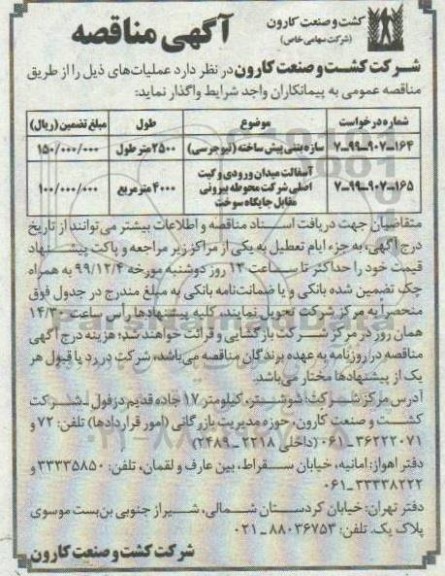 کشت و صنعت کارون
(شرکت سهامی خاص)
آگهی مناقصه
شرکت کشت و صنعت کارون در نظر دارد عملیات‌های ذیل را از طریق
مناقصه عمومی به پیمانکاران واجد شرایط واگذار نماید:
شماره درخواست موضوع طول مبلغ تضمین (ریال)
۷-۹۹-۹۰۷-۱۶۴ سازه بتنی پیش ساخته (نیوجرسی) ۲۵۰۰ متر طول ۱۵۰/۰۰۰/۰۰۰
۷-۹۹-۹۰۷-۱۶۵ آسفالت میدان ورودی و گیت
اصلی شرکت محوطه بیرونی
مقابل جایگاه سوخت ۴۰۰۰ متر مربع ۱۰۰/۰۰۰/۰۰۰
متقاضیان جهت دریافت اسناد مناقصه و اطلاعات بیشتر می‌توانند از تاریخ
درج آگهی، به جزء ایام تعطیل به یکی از مراکز زیر مراجعه و پاکت پیشنهاد
قیمت خود را حداکثر تا ساعت ۱۲ روز دوشنبه مورخه ۹۹/۱۲/۴ به همراه
چک تضمین شده بانکی و یا ضمانت‌نامه بانکی به مبلغ مندرج در جدول فوق
منحصراً به مرکز شرکت تحویل نمایند، کلیه پیشنهادها رأس ساعت ۱۴/۳۰
همان روز در مرکز شرکت بازگشایی و قرائت خواهند شد؛ هزینه درج آگهی
مناقصه در روزنامه به عهده برندگان مناقصه می‌باشد، شرکت در رد یا قبول هر
یک از پیشنهادها مختار می‌باشد.
آدرس مرکز شرکت: شوشتر، کیلومتر ۱۷ جاده قدیم دزفول - شرکت
کشت و صنعت کارون، حوزه مدیریت بازرگانی (امور قراردادها) تلفن: ۷۲ و
۳۶۲۲۲۰۷۱-۰۶۱ (داخلی ۲۲۱۸ - ۲۴۸۹)
دفتر اهواز: امانیه، خیابان سقراط، بین عارف و لقمان، تلفن: ۳۳۳۳۵۸۵۰ و
۳۳۳۳۸۲۲۲-۰۶۱
دفتر تهران: خیابان کردستان شمالی، شیراز جنوبی بن‌بست موسوی
پلاک یک. تلفن: ۸۸۰۳۶۷۵۳-۰۲۱
شرکت کشت و صنعت کارون